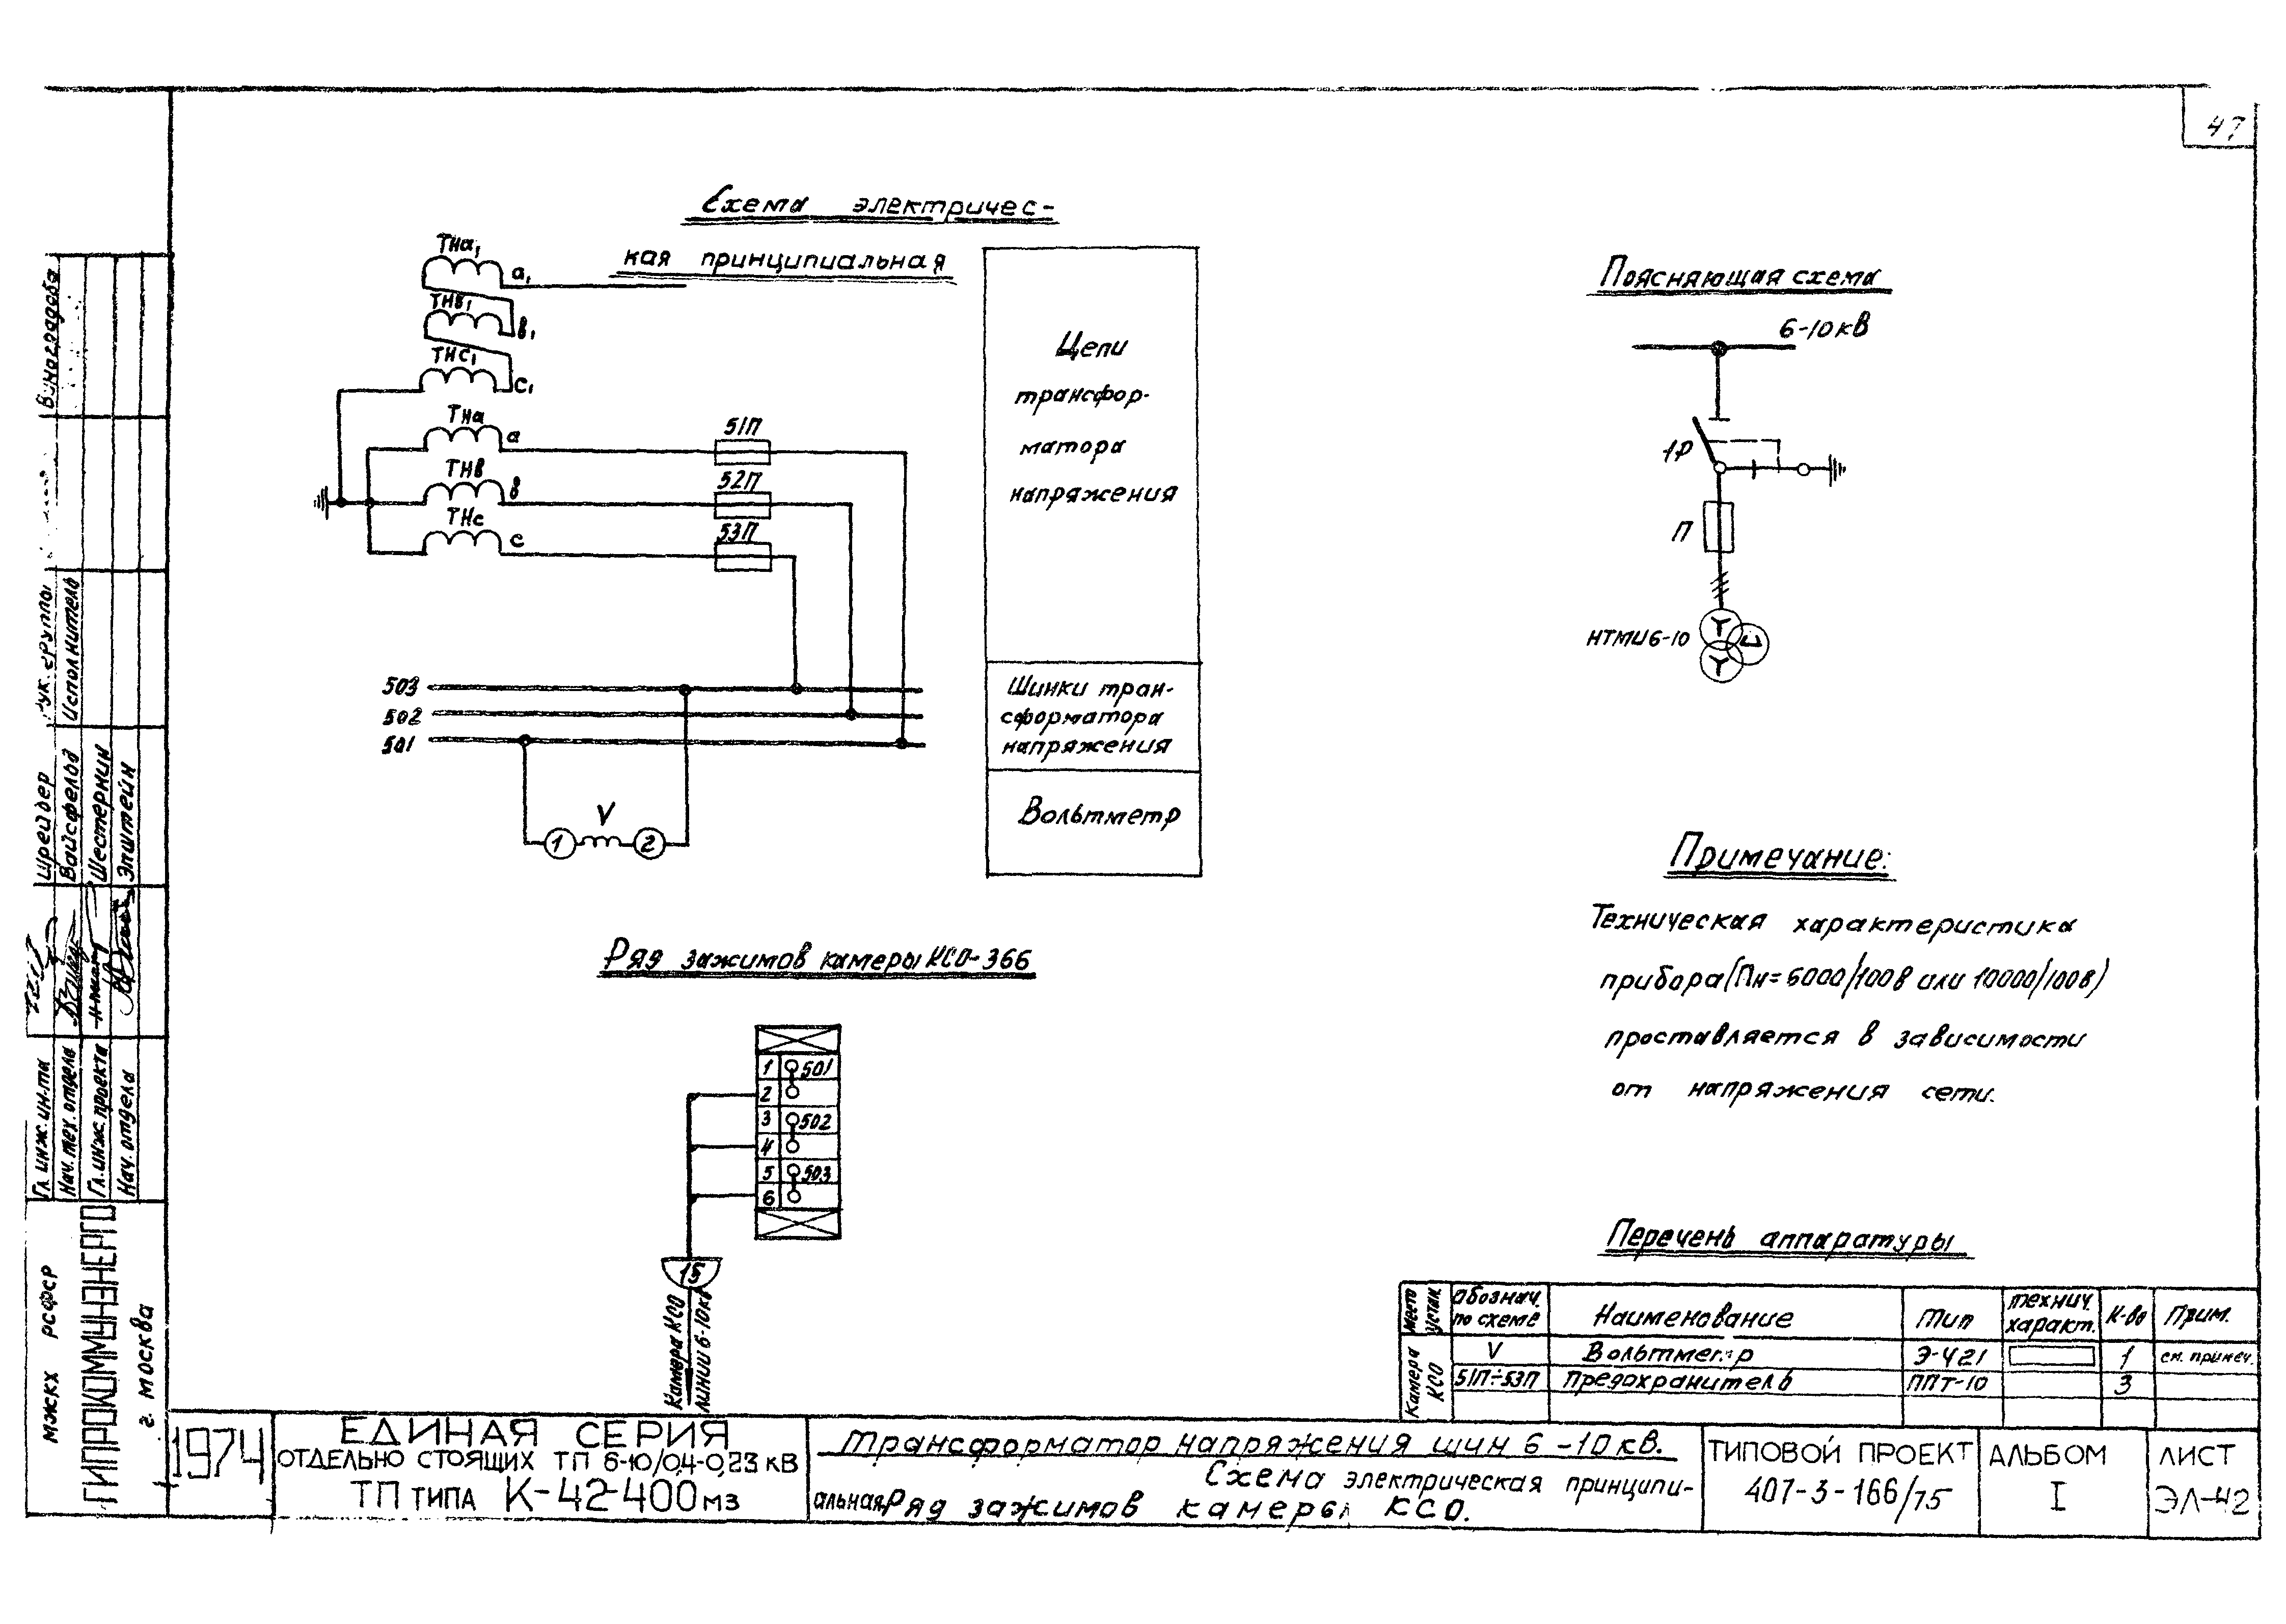 47
Схема электричес-
кая принципиальная
ТНа₁
а₁
ТНв₁
в₁
ТНс₁
с₁
ТНа
а
51П
ТНв
в
52П
ТНс
с
53П
Цепи
трансфор-
матора
напряжения
503
502
501
Шинки тран-
сформатора
напряжения
V
1
2
Вольтметр
Поясняющая схема
6-10кВ
1Р
П
НТМИ6-10
Примечание:
Техническая характеристика
прибора (Пн=6000/100в или 10000/100в)
проставляется в зависимости
от напряжения сети.
Ряд зажимов камеры КСО-366
1 501
2
3 502
4
5 503
6
15
Камера КСО
линии 6-10кв
Перечень аппаратуры
Место устан.
Обознач. по схеме
Наименование
Тип
технич. характ.
К-во
Прим.
Камера КСО
V Вольтметр Э-421 1 см. примеч.
51П÷53П Предохранитель ППТ-10 3
1974
ЕДИНАЯ СЕРИЯ
ОТДЕЛЬНО СТОЯЩИХ ТП 6-10/0,4-0,23 кВ
ТП ТИПА К-42-400 мз
Трансформатор напряжения шин 6-10кв.
Схема электрическая принципи-
альная. Ряд зажимов камеры КСО.
ТИПОВОЙ ПРОЕКТ
407-3-166/75
АЛЬБОМ
I
ЛИСТ
ЭЛ-42
МЖКХ РСФСР
ГИПРОКОММУНЭНЕРГО
г. москва
Гл. инж. ин-та
Шрейдер
Рук. группы
Виноградова
Нач. тех. отдела
Вайсфельд
Исполнитель
Гл. инж. проекта
Шестернин
Нач. отдела
Эпштейн